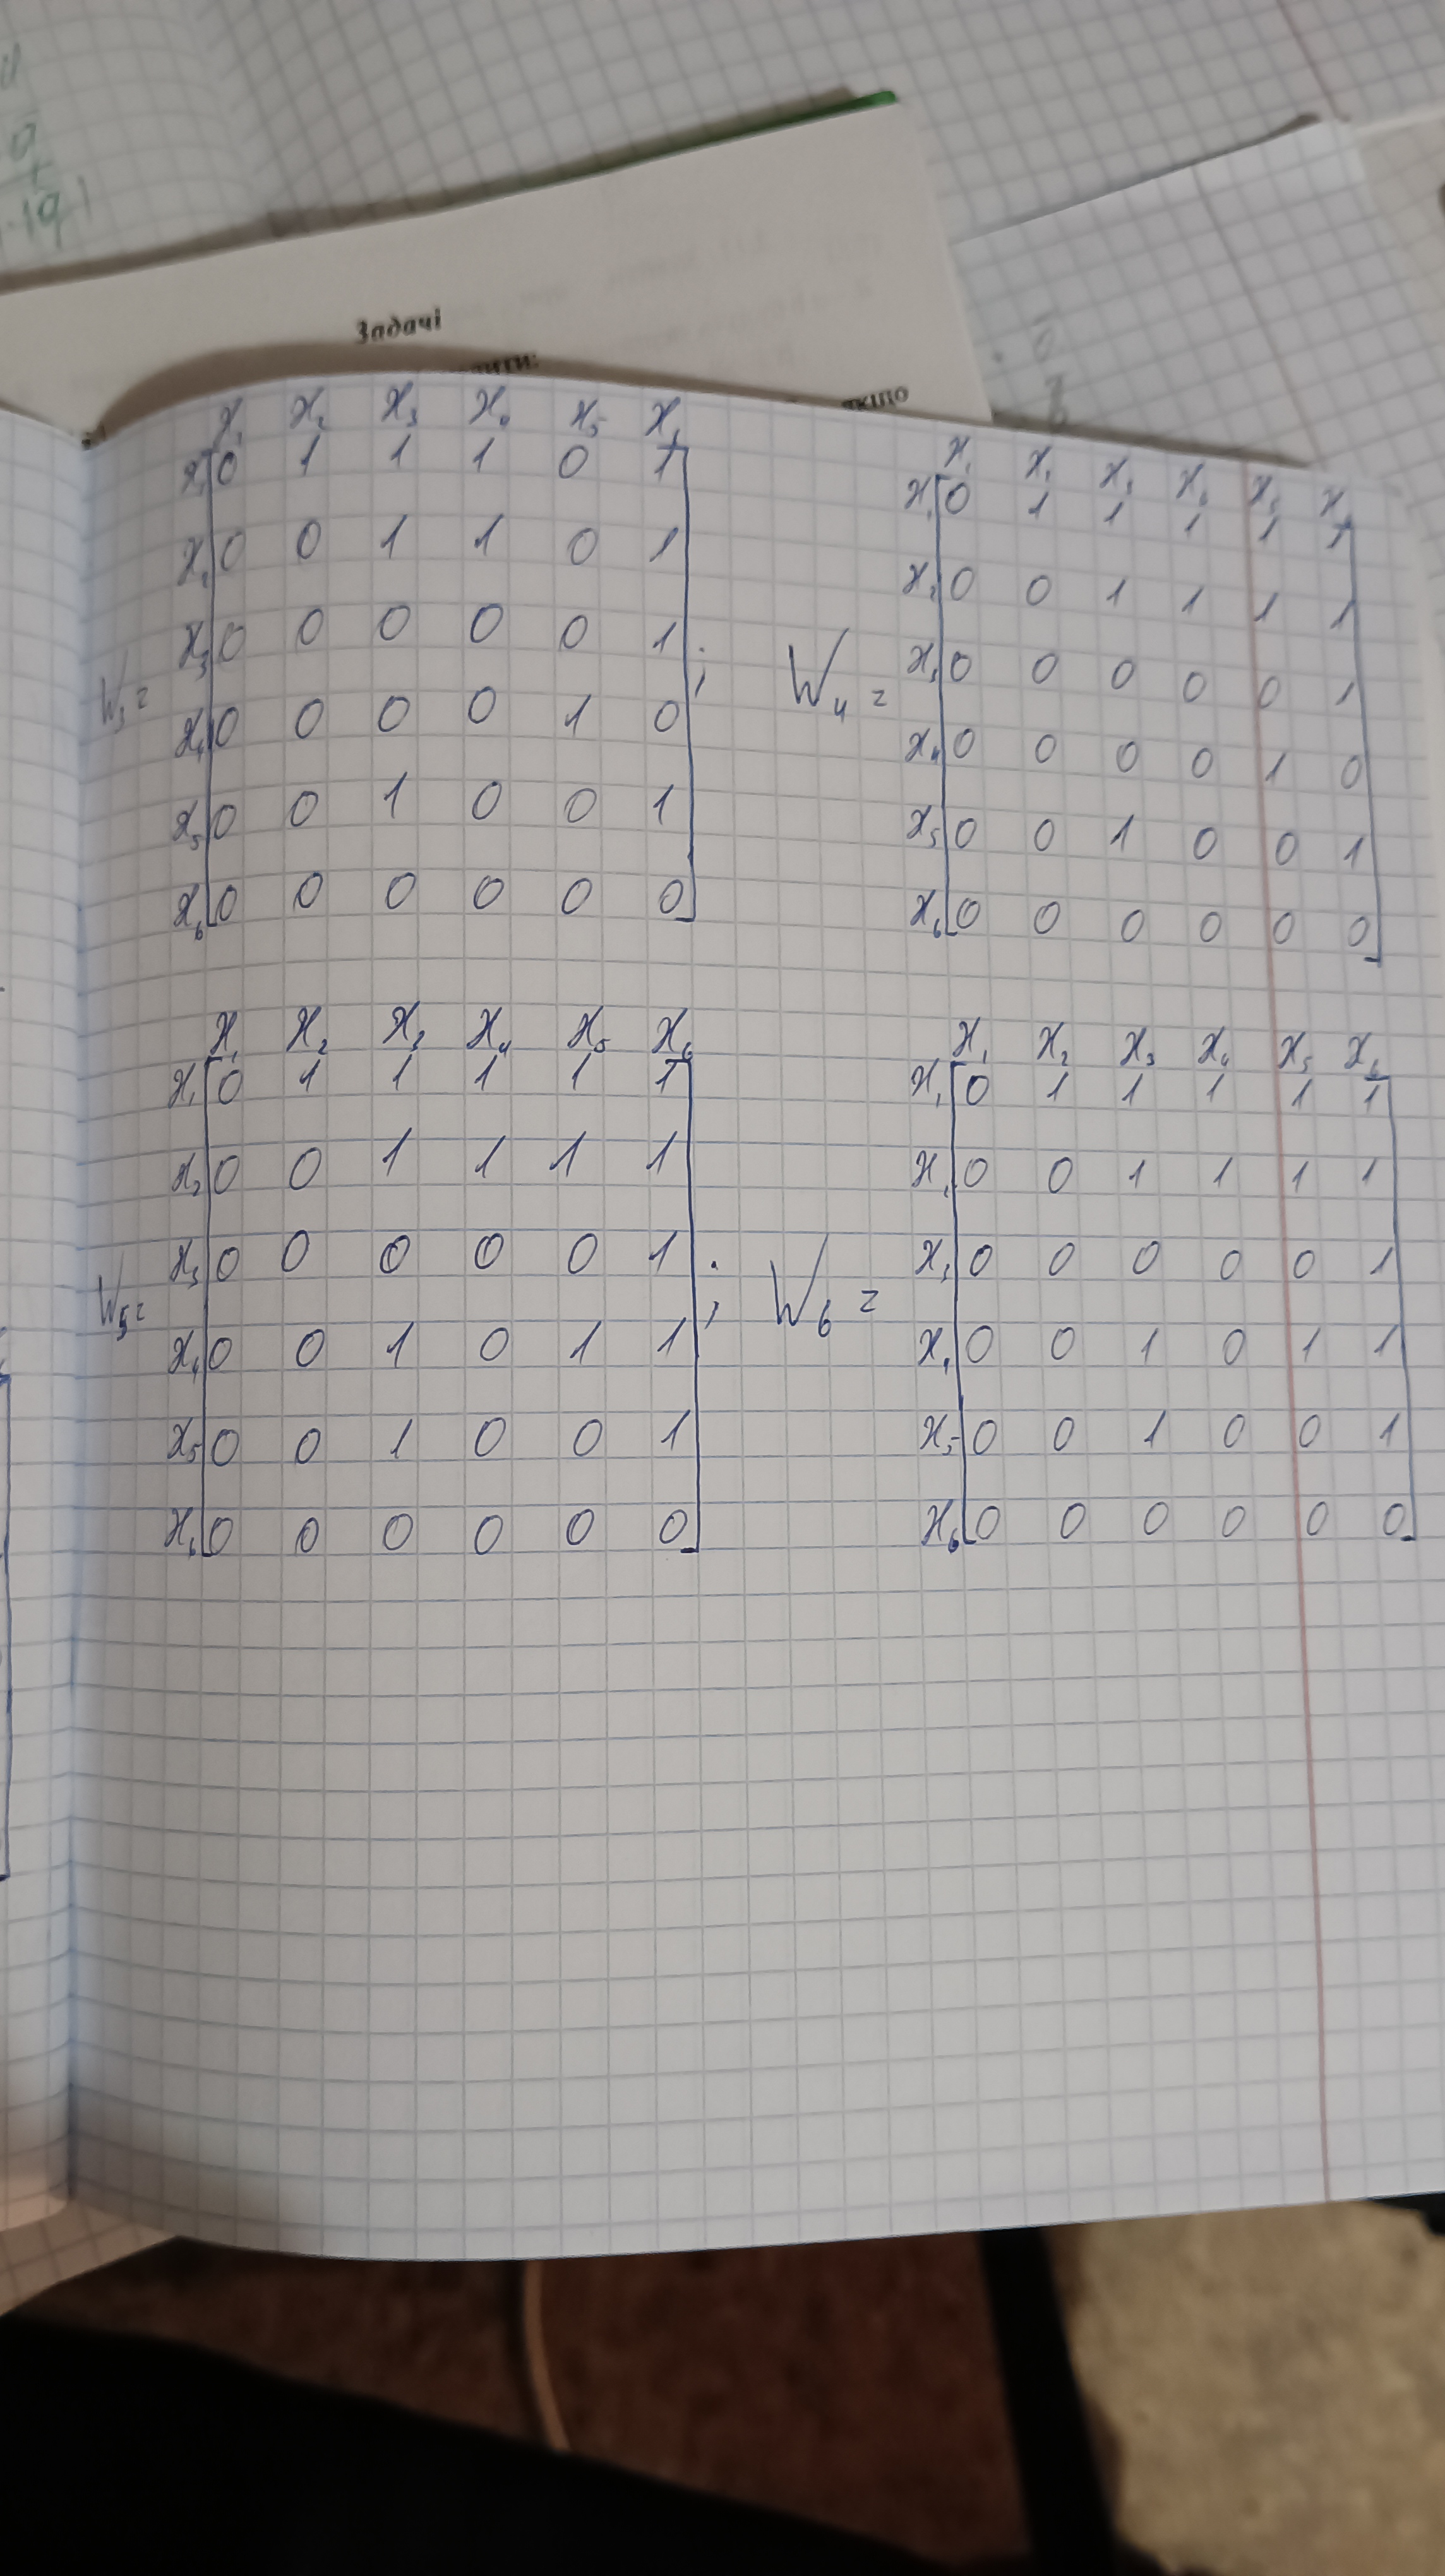 Задачі
якщо
x₁ x₂ x₃ x₄ x₅ x₆
x₁ 0 1 1 1 0 1
x₂ 0 0 1 1 0 1
x₃ 0 0 0 0 0 1
W₃ =
x₄ 0 0 0 0 1 0
x₅ 0 0 1 0 0 1
x₆ 0 0 0 0 0 0
;
x₁ x₂ x₃ x₄ x₅ x₆
x₁ 0 1 1 1 1 1
x₂ 0 0 1 1 1 1
x₃ 0 0 0 0 0 1
W₄ =
x₄ 0 0 0 0 1 0
x₅ 0 0 1 0 0 1
x₆ 0 0 0 0 0 0
x₁ x₂ x₃ x₄ x₅ x₆
x₁ 0 1 1 1 1 1
x₂ 0 0 1 1 1 1
x₃ 0 0 0 0 0 1
W₅ =
x₄ 0 0 1 0 1 1
x₅ 0 0 1 0 0 1
x₆ 0 0 0 0 0 0
;
x₁ x₂ x₃ x₄ x₅ x₆
x₁ 0 1 1 1 1 1
x₂ 0 0 1 1 1 1
x₃ 0 0 0 0 0 1
W₆ =
x₄ 0 0 1 0 1 1
x₅ 0 0 1 0 0 1
x₆ 0 0 0 0 0 0